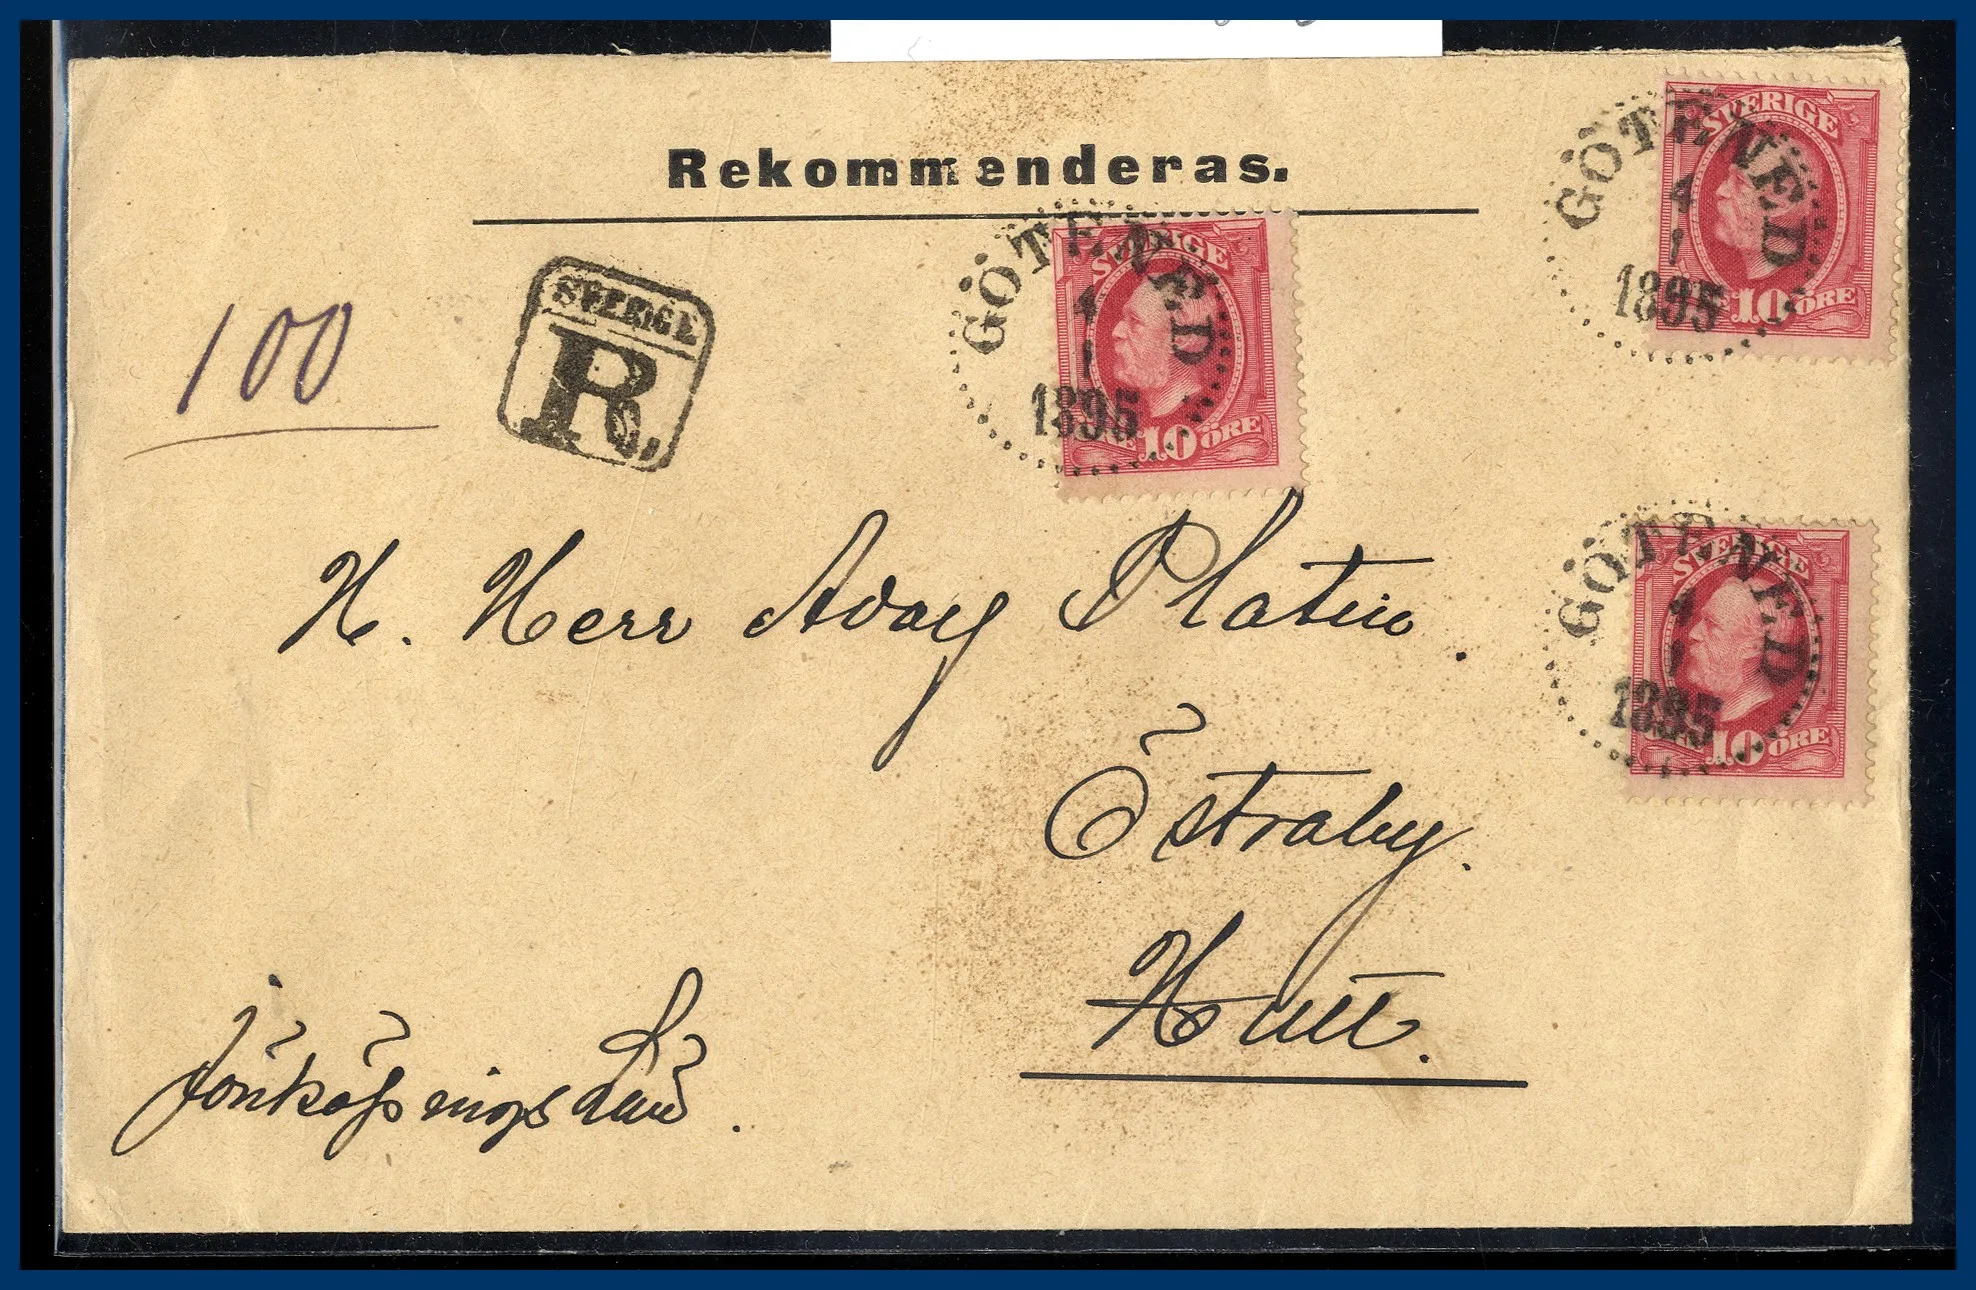 Rekommenderas.
100
SVERIGE
R
GÖTENED
4
1
1895
SVERIGE
10 ÖRE
GÖTENED
4
1
1895
SVERIGE
10 ÖRE
GÖTENED
4
1
1895
SVERIGE
10 ÖRE
H. Herr Adolf Platin.
Östraby.
Hult.
Jönköpings Län.